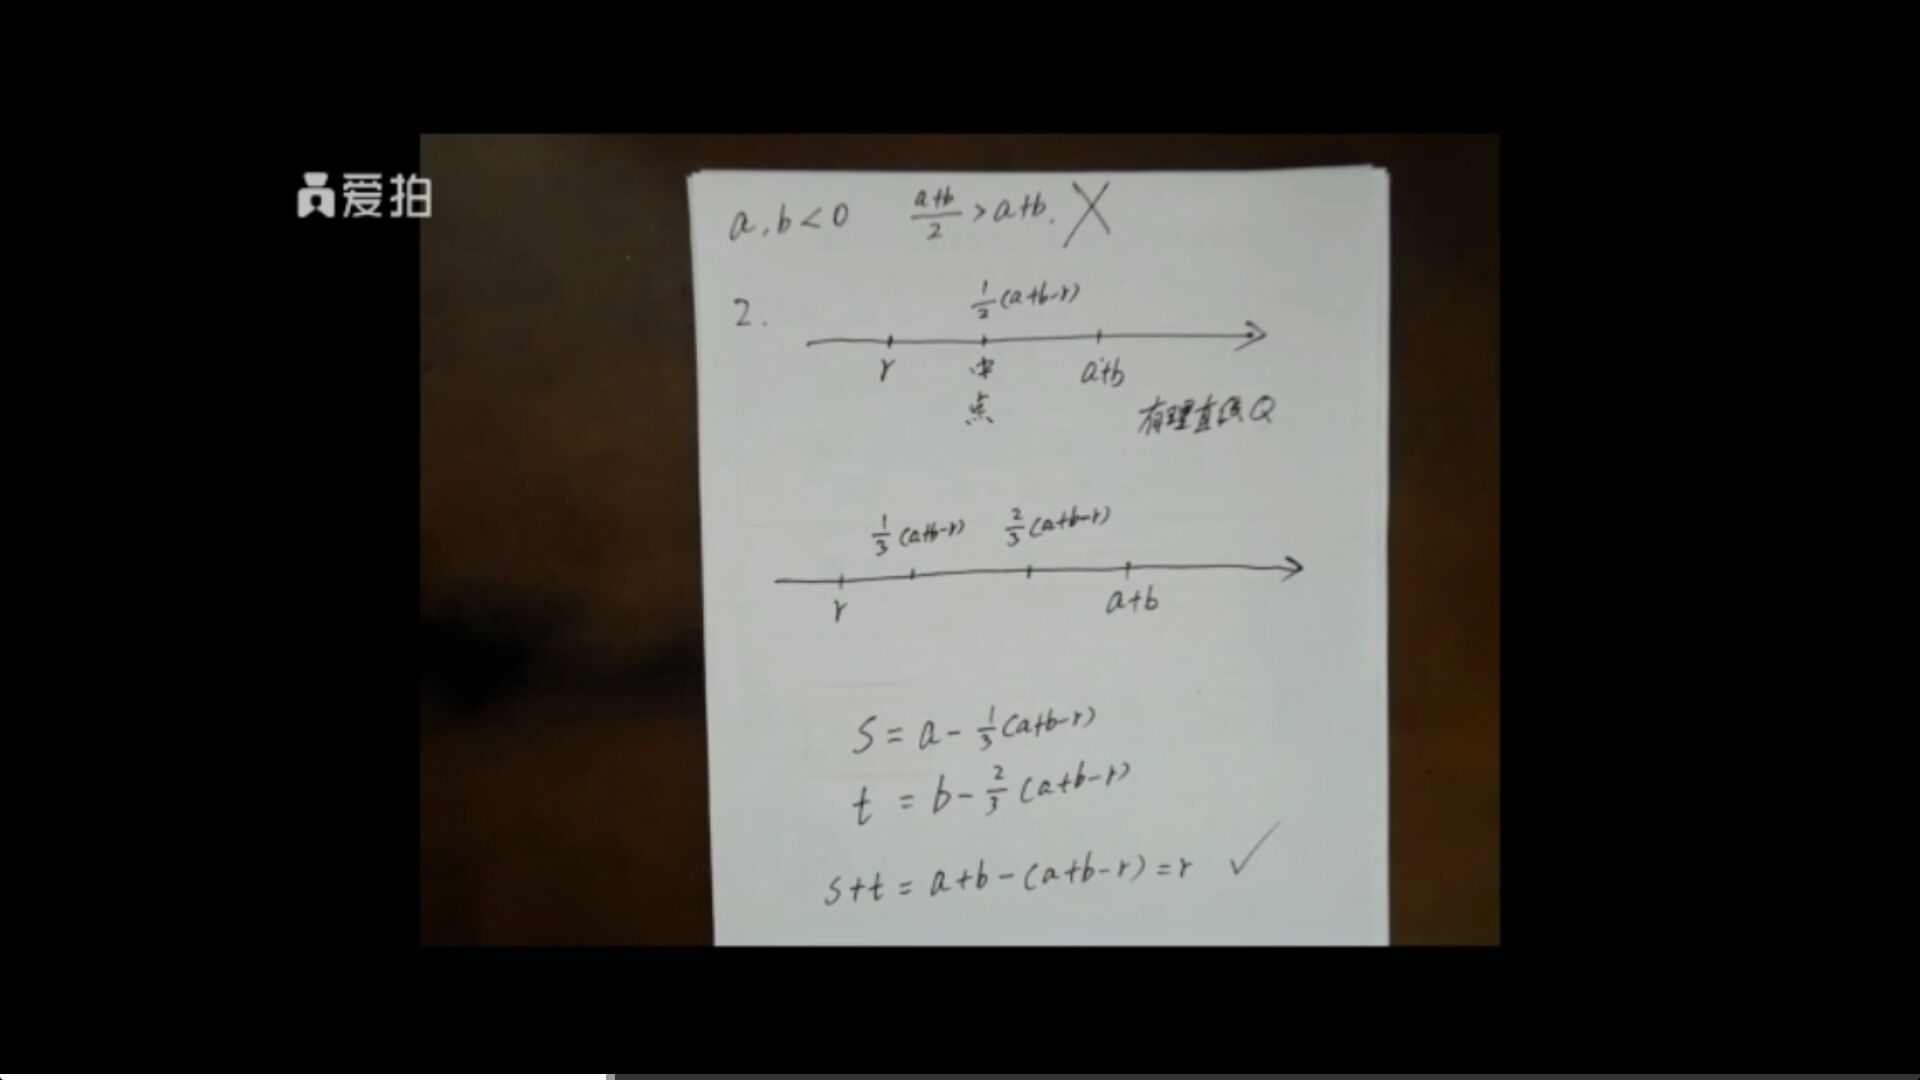 爱拍
a,b<0 (a+b)/2 > a+b. ×
2.
1/2(a+b-r)
r 中点 a+b
有理直线Q
1/3(a+b-r) 2/3(a+b-r)
r a+b
S = a - 1/3(a+b-r)
t = b - 2/3(a+b-r)
s+t = a+b-(a+b-r) = r ✓